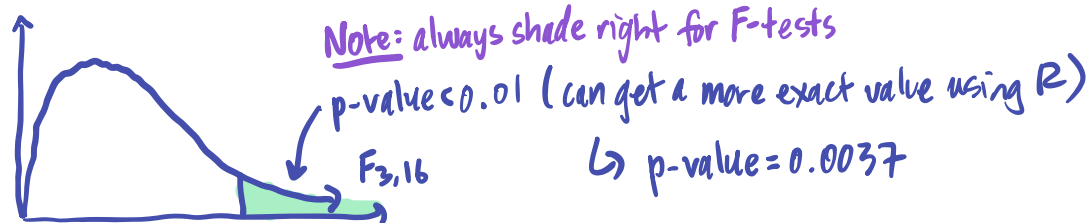 Note: always shade right for F-tests
p-value<0.01 (can get a more exact value using R)
F3,16
↳ p-value=0.0037